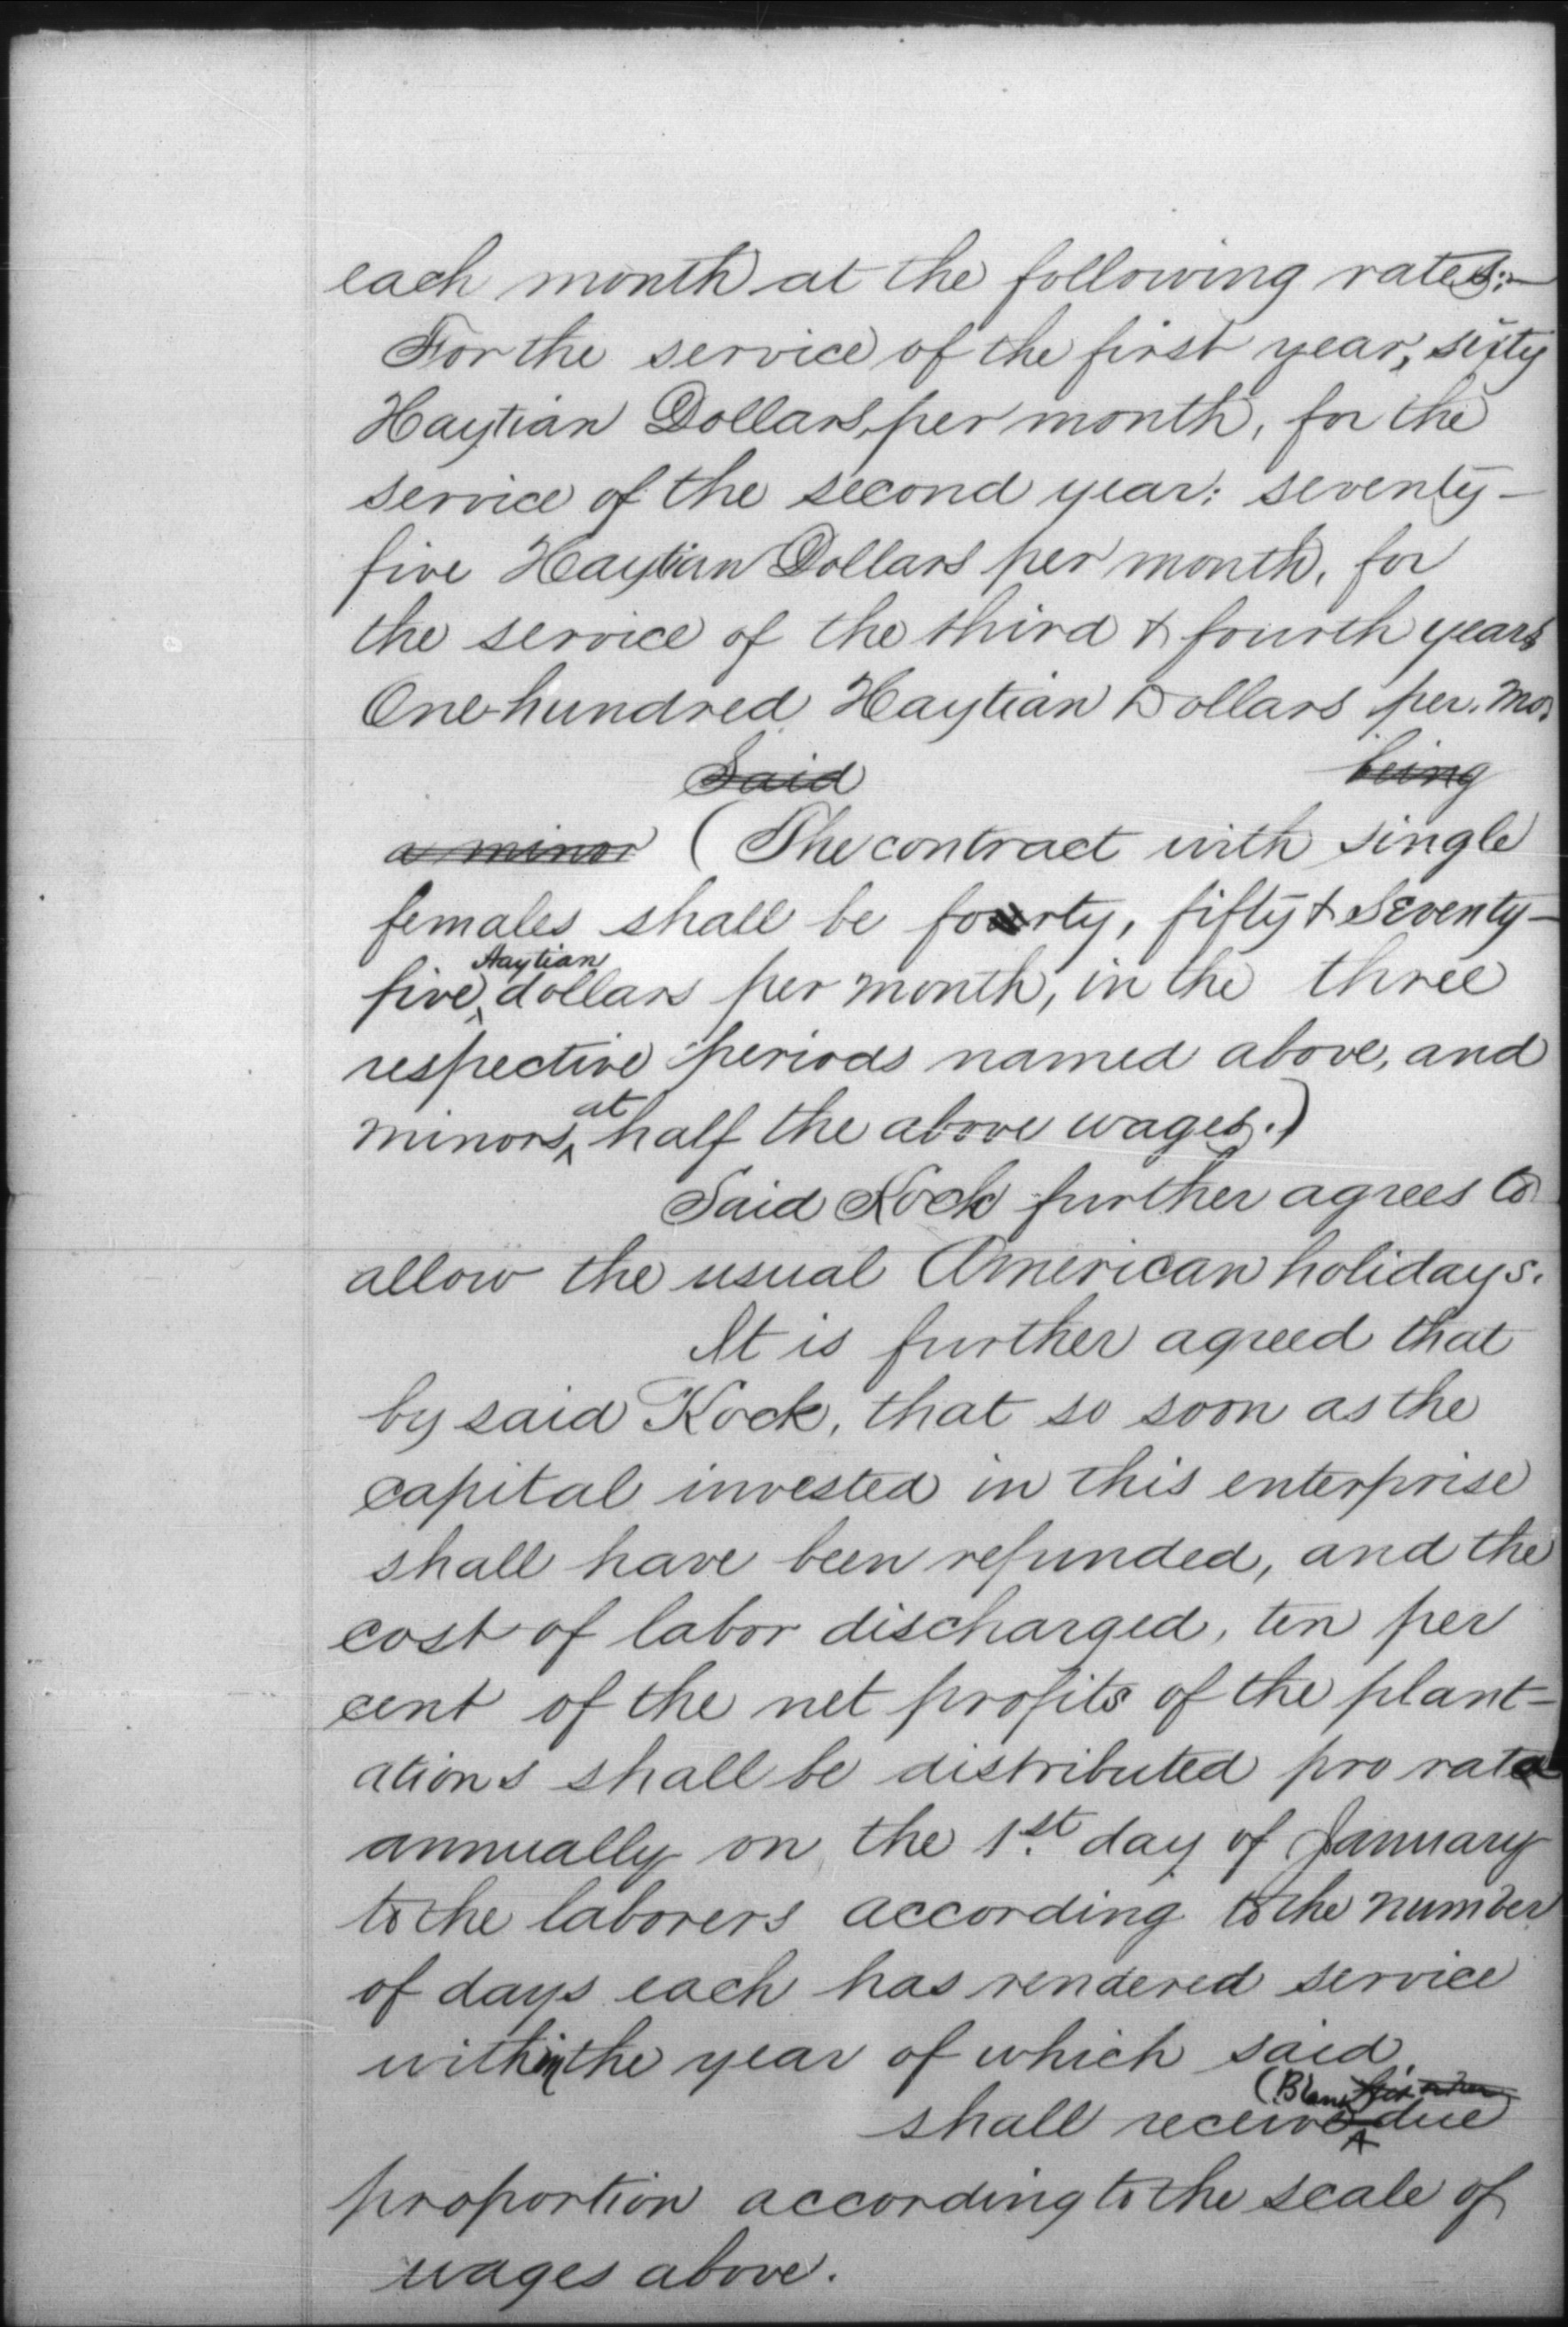 each month at the following rates:—
For the service of the first year, sixty
Haytian Dollars per month, for the
service of the second year: seventy-
five Haytian Dollars per month, for
the service of the third & fourth years
One hundred Haytian Dollars per. mo.
Said being
a minor (The contract with single
females shall be forty, fifty & seventy-
five Haytian dollars per month, in the three
respective periods named above, and
minors, at half the above wages.)
Said Kock further agrees to
allow the usual American holidays.
It is further agreed that
by said Kock, that so soon as the
capital invested in this enterprise
shall have been refunded, and the
cost of labor discharged, ten per
cent of the net profits of the plant-
ations shall be distributed pro rata
annually on the 1st. day of January
to the laborers according to the number
of days each has rendered service
within the year of which said
(Blank
shall receive due
proportion according to the scale of
wages above.